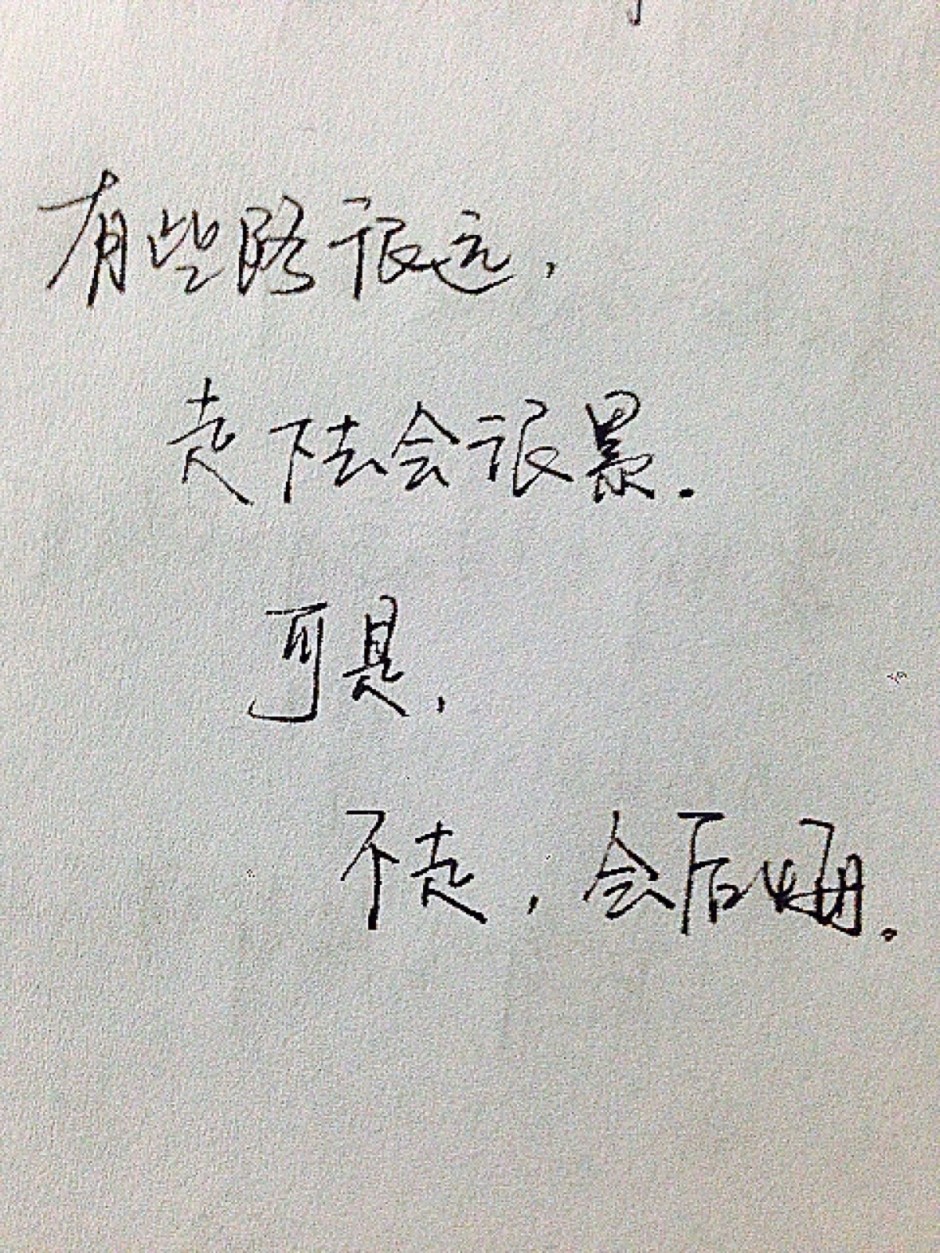 有些路很远，
走下去会很累.
可是，
不走，会后悔。